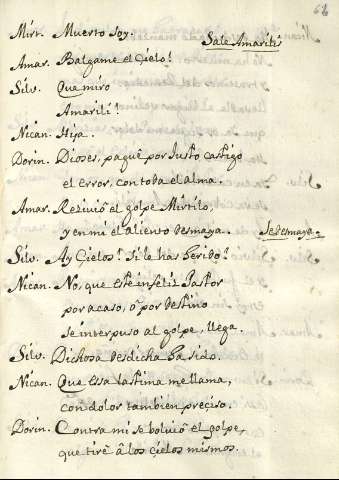 62
Mirt. Muerto soy.
Sale Amarili
Amar. Balgame el Çielo!
Silv. Que miro
Amarili!
Nican. Hija.
Dorin. Dioses, pague por Iusto castigo
el error, con toda el alma.
Amar. Reziviò el golpe Mirtilo,
y en mi el aliento desmaya. Sedesmaya.
Silv. Ay Çielos! Si le has herido?
Nican. No, que este infeliz Pastor
por acaso, ô por destino
se interpuso al golpe, llega.
Silv. Dichosa desdicha ha sido.
Nican. Que essa lastima me llama,
con dolor tambien preciso.
Dorin. Contra mi se bolviò el golpe,
que tirè â los çielos mismos.